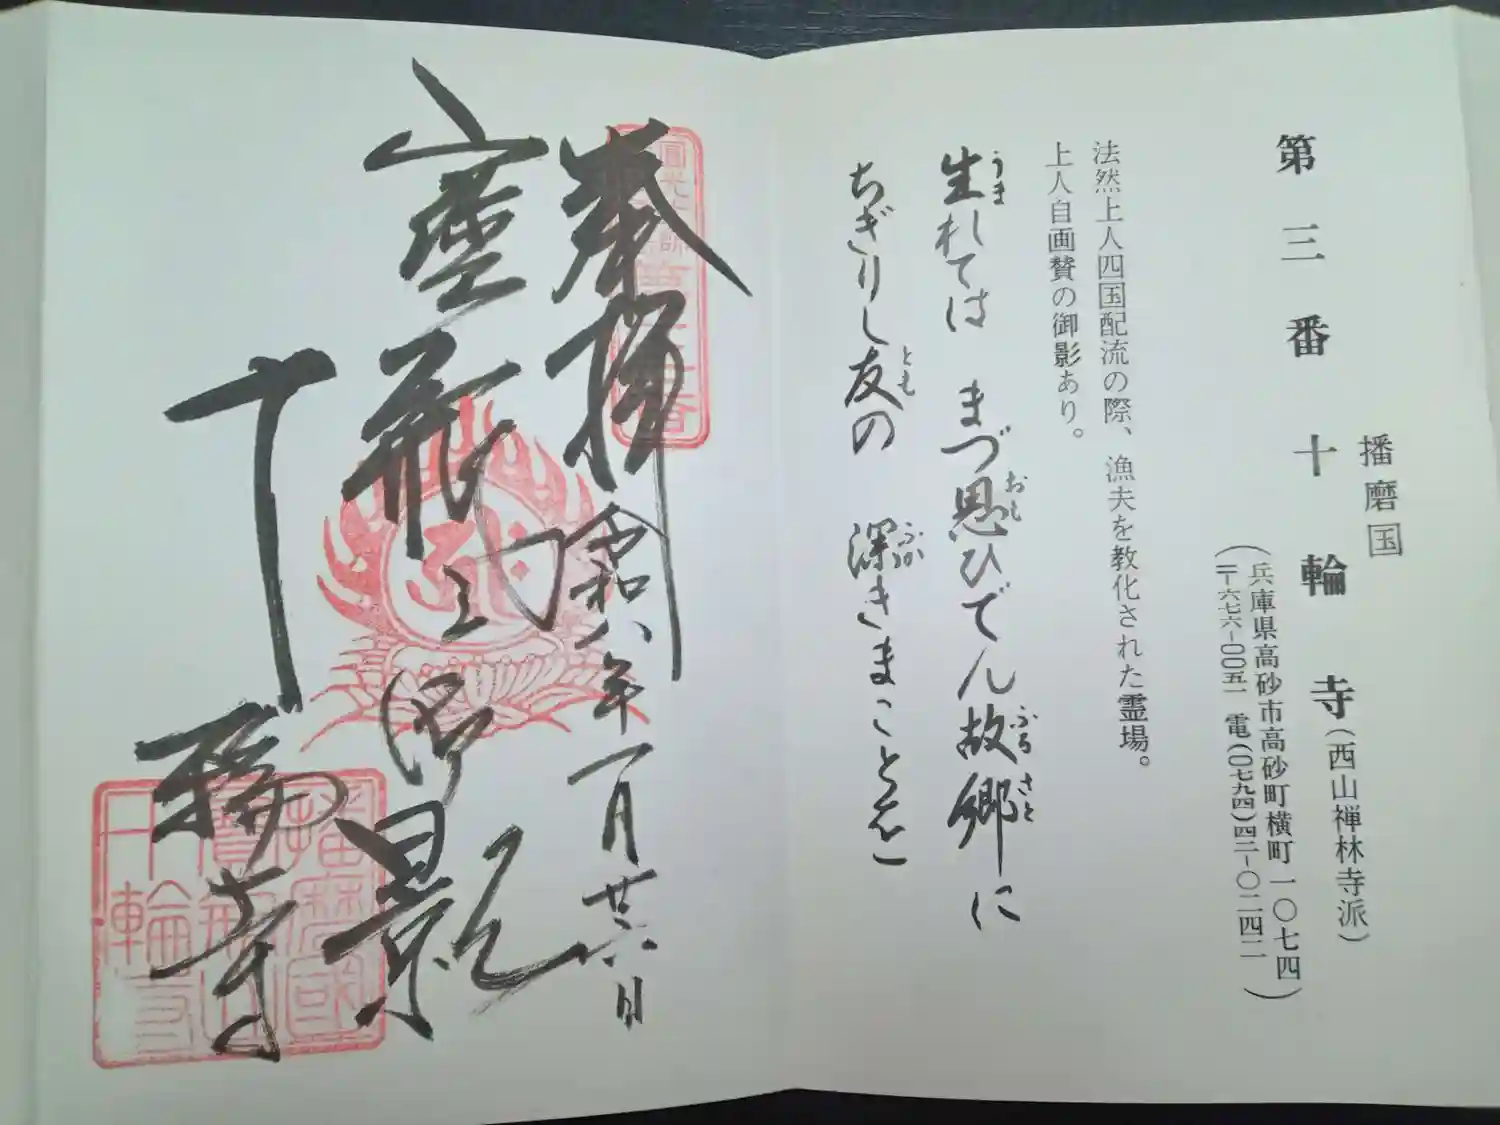 播磨国
第三番 十輪寺(西山禅林寺派)
(兵庫県高砂市高砂町横町一〇七四
〒六七六-〇〇五一 電(〇七九四)四二-〇二四二)
法然上人四国配流の際、漁夫を教化された霊場。
上人自画賛の御影あり。
生れては まづ思ひでん故郷に
うま おも ふるさと
ちぎりし友の 深きまことを
とも ふか
奉拝 令和六年一月廿六日
御影
十輪寺